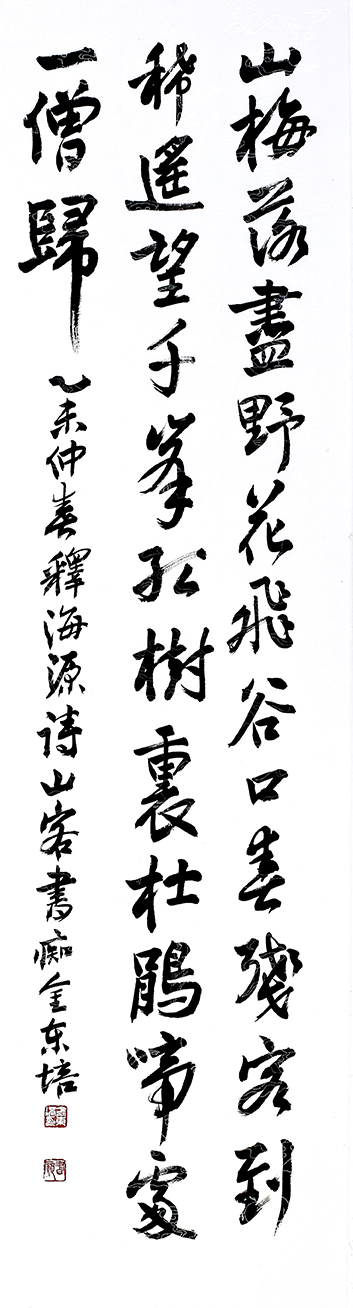 山梅落盡野花飛谷口春殘客到
稀遙望千峯紅樹裏杜鵑啼處
一僧歸 乙未仲春釋海源诗山客書痴金东培